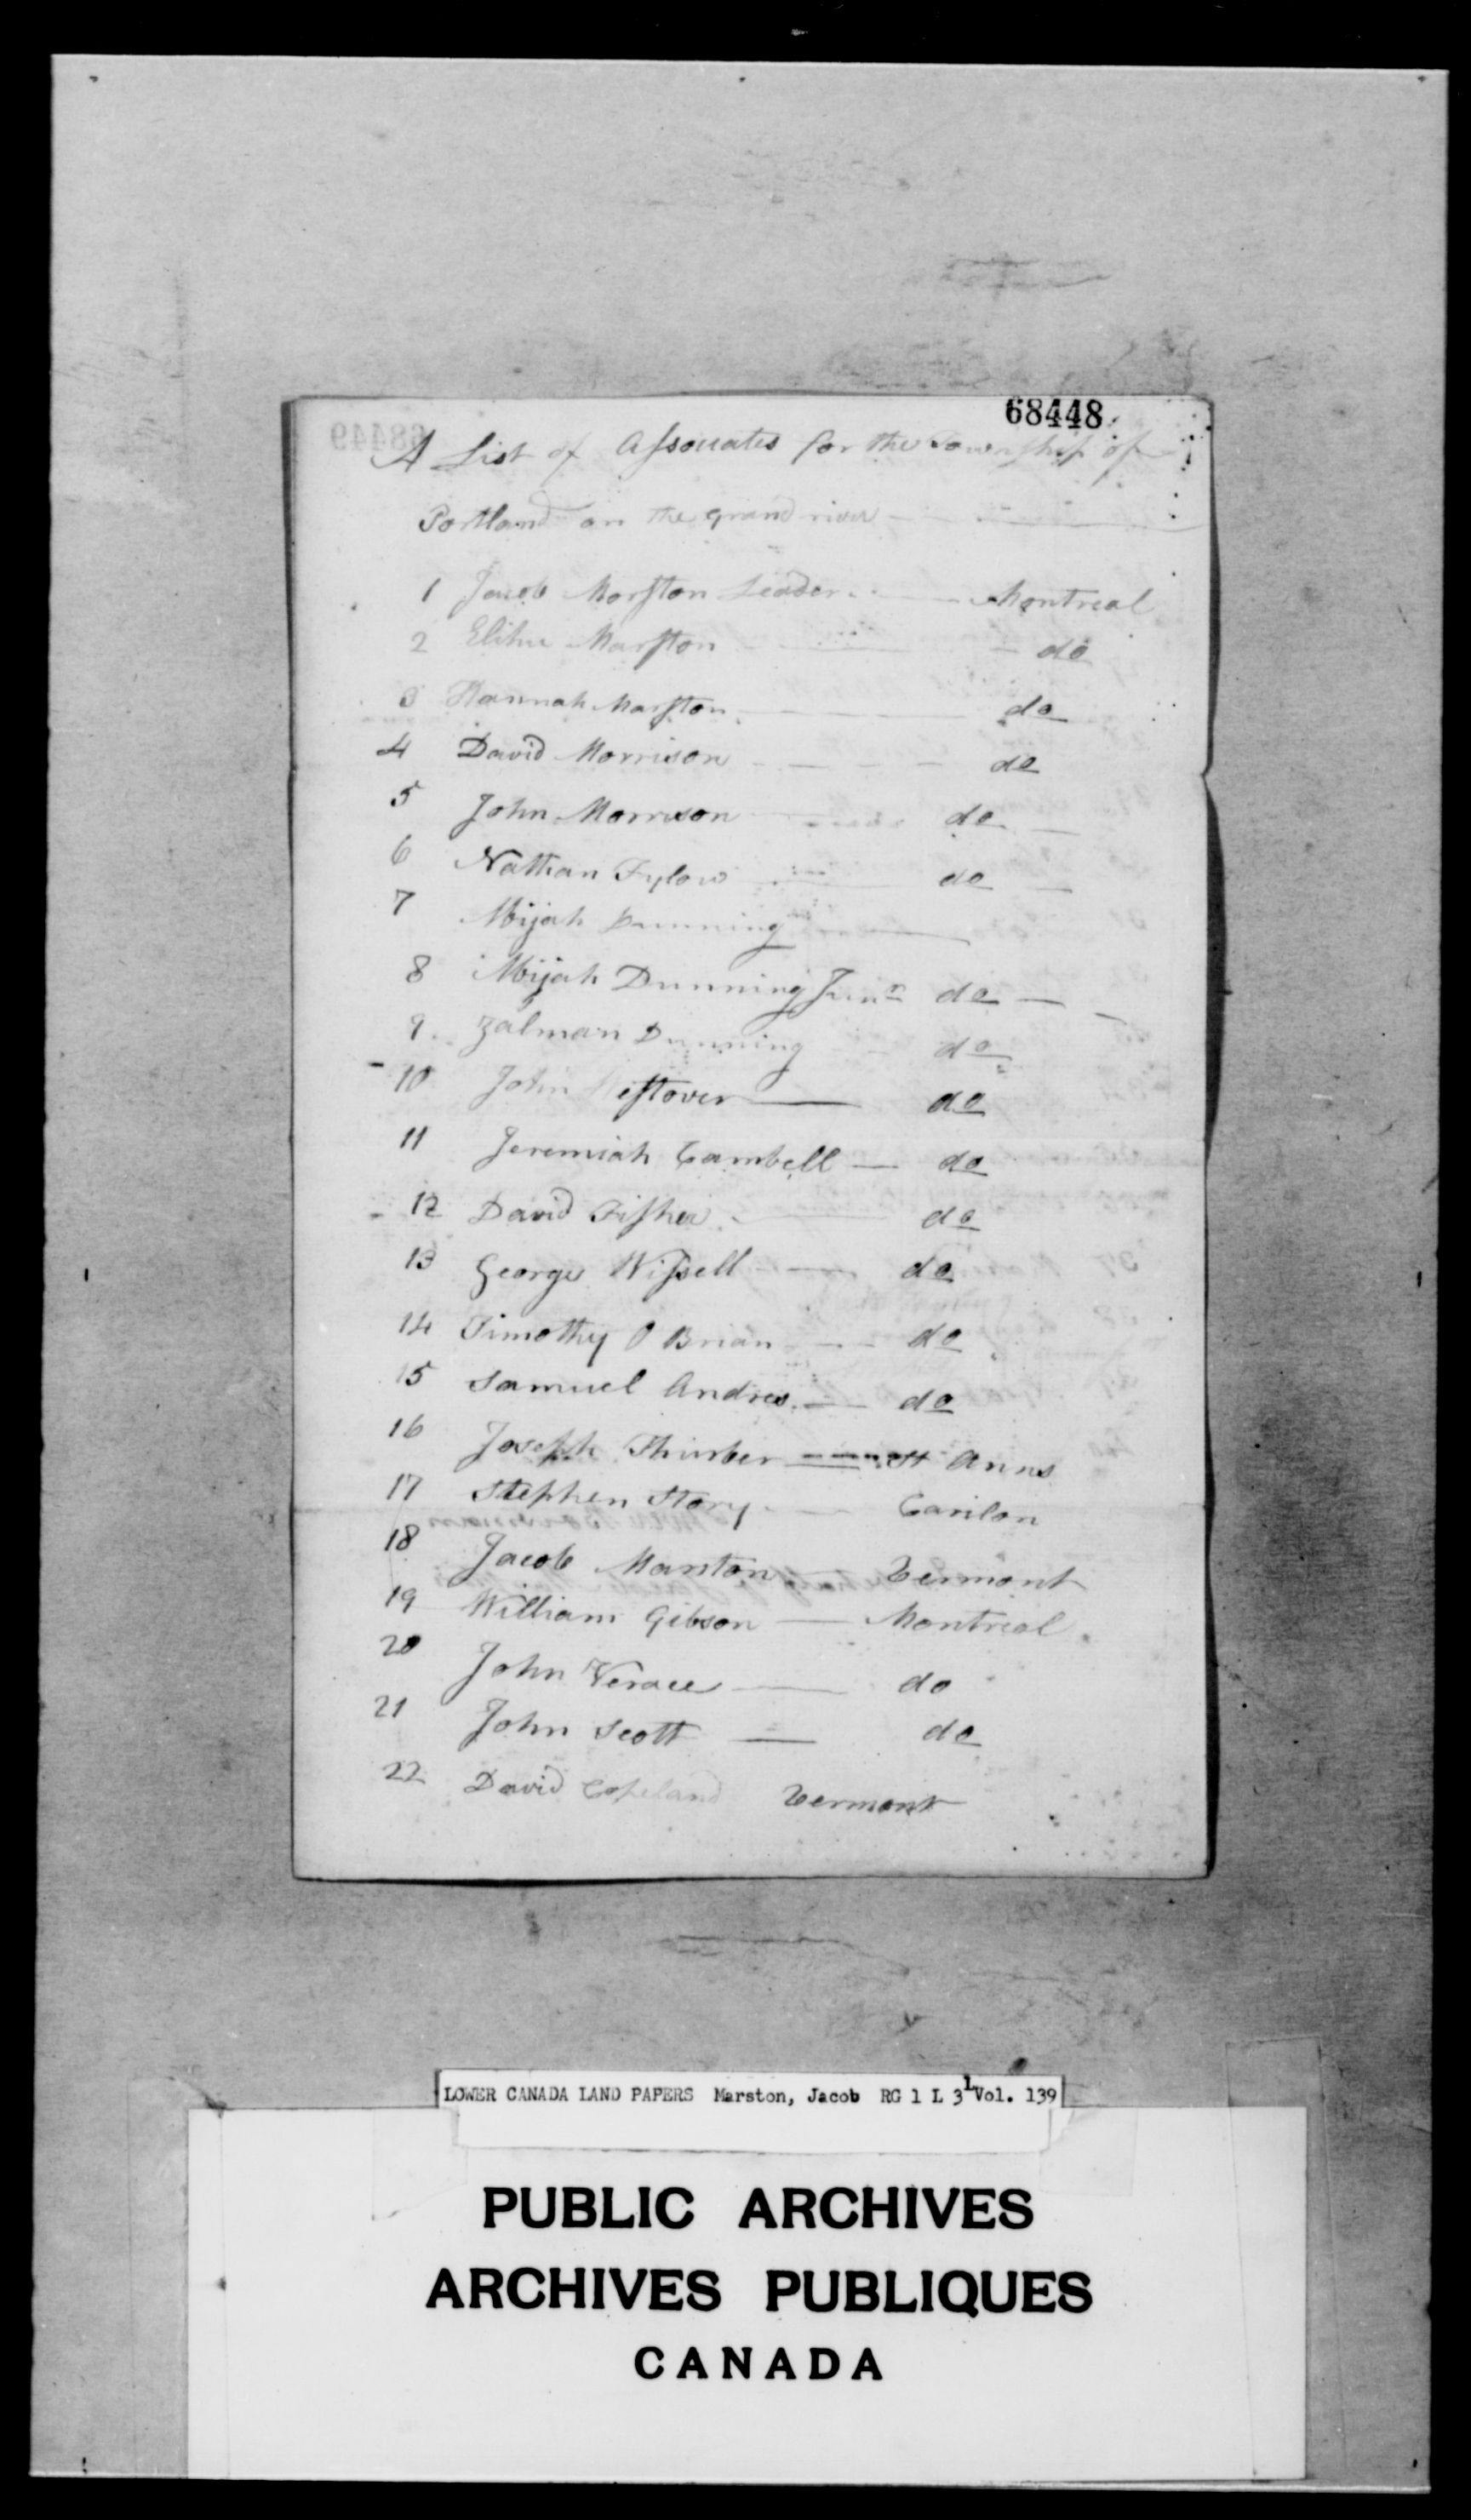 68448
A List of Associates for the Township of
Portland on the grand river
1 Jacob Marston Leader - Montreal
2 Elihu Marston - do
3 Hannah Marston - do
4 David Morrison - do
5 John Morrison - do
6 Nathan Tylow - do
7 Abijah Dunning
8 Abijah Dunning Junr do
9 Zalman Dunning - do
10 John Westover - do
11 Jeremiah Cambell - do
12 David Fisher - do
13 George Wissell - do
14 Timothy O Brian - do
15 Samuel Andres - do
16 Joseph Thurber - St Anns
17 Stephen Story - Carilon
18 Jacob Marston - Vermont
19 William Gibson - Montreal
20 John - do
21 John Scott - do
22 David Copeland Vermont
LOWER CANADA LAND PAPERS Marston, Jacob RG 1 L 3 1 Vol. 139
PUBLIC ARCHIVES
ARCHIVES PUBLIQUES
CANADA